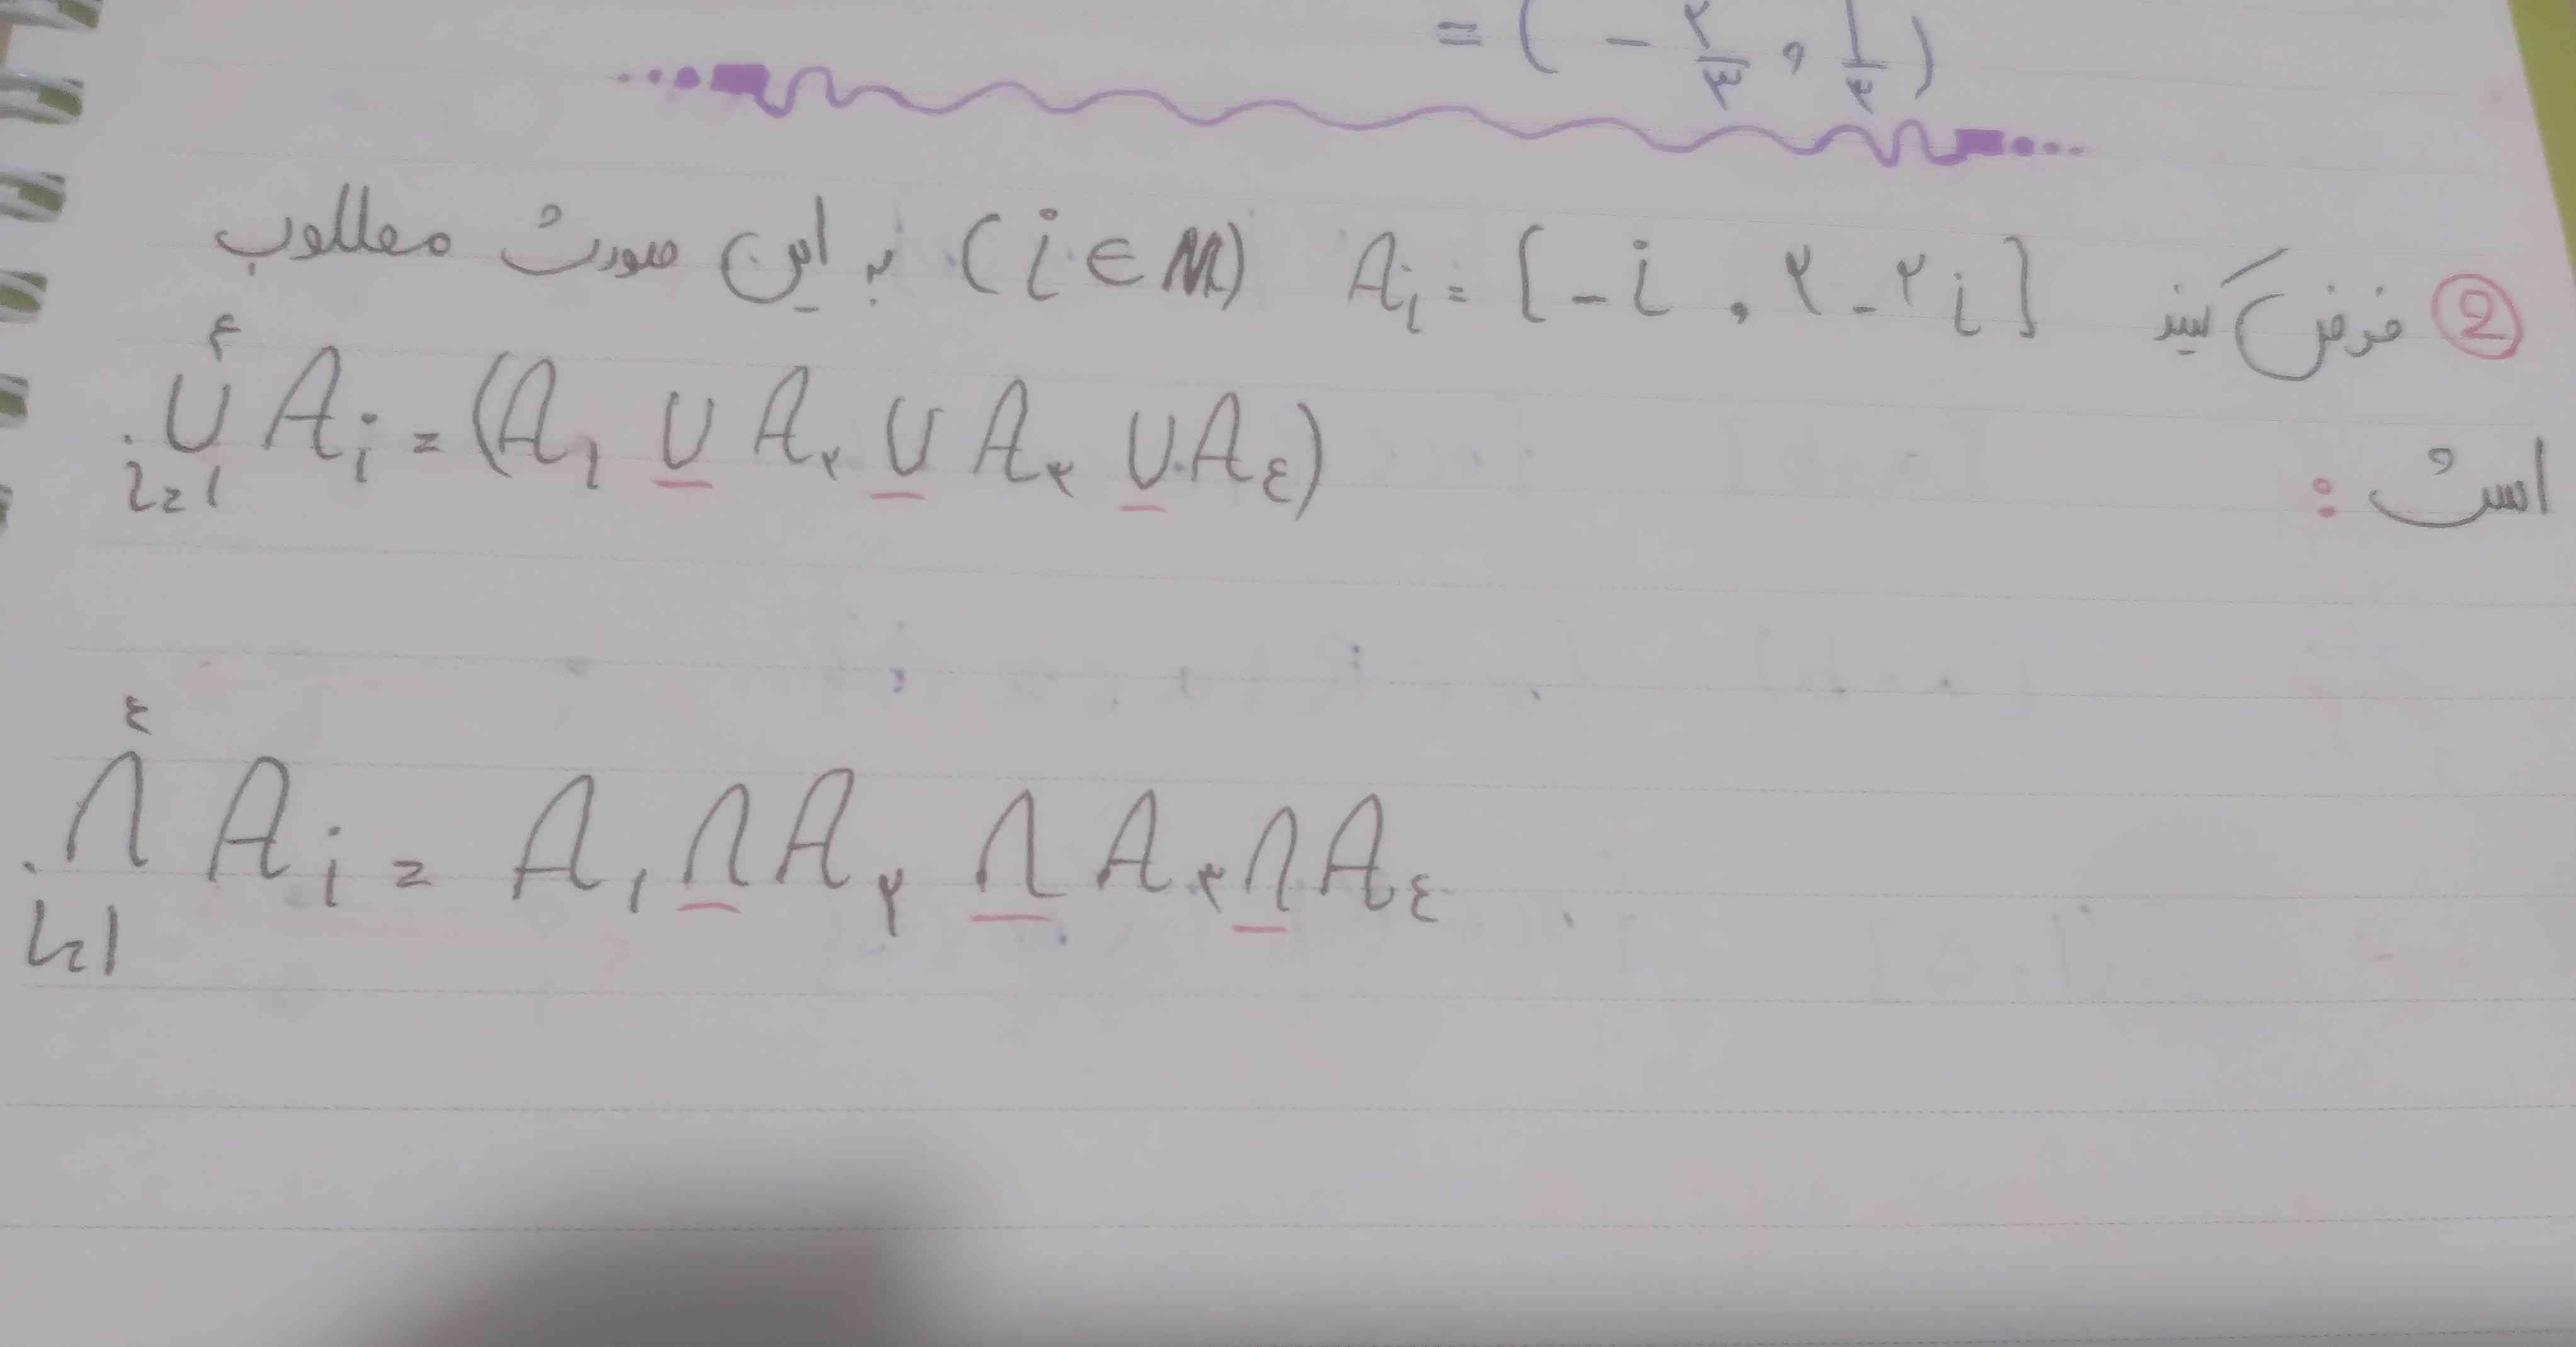 = (-۲/۳ , ۱/۳)
② فرض کنید Aᵢ = [-i , ۲-۲i] (i ∈ M) به این صورت مطلوب
است :
⋃ᵢ₌₁^۴ Aᵢ = (A₁ ∪ A₂ ∪ A₃ ∪ A₄)
⋂ᵢ₌₁^۴ Aᵢ = A₁ ∩ A₂ ∩ A₃ ∩ A₄